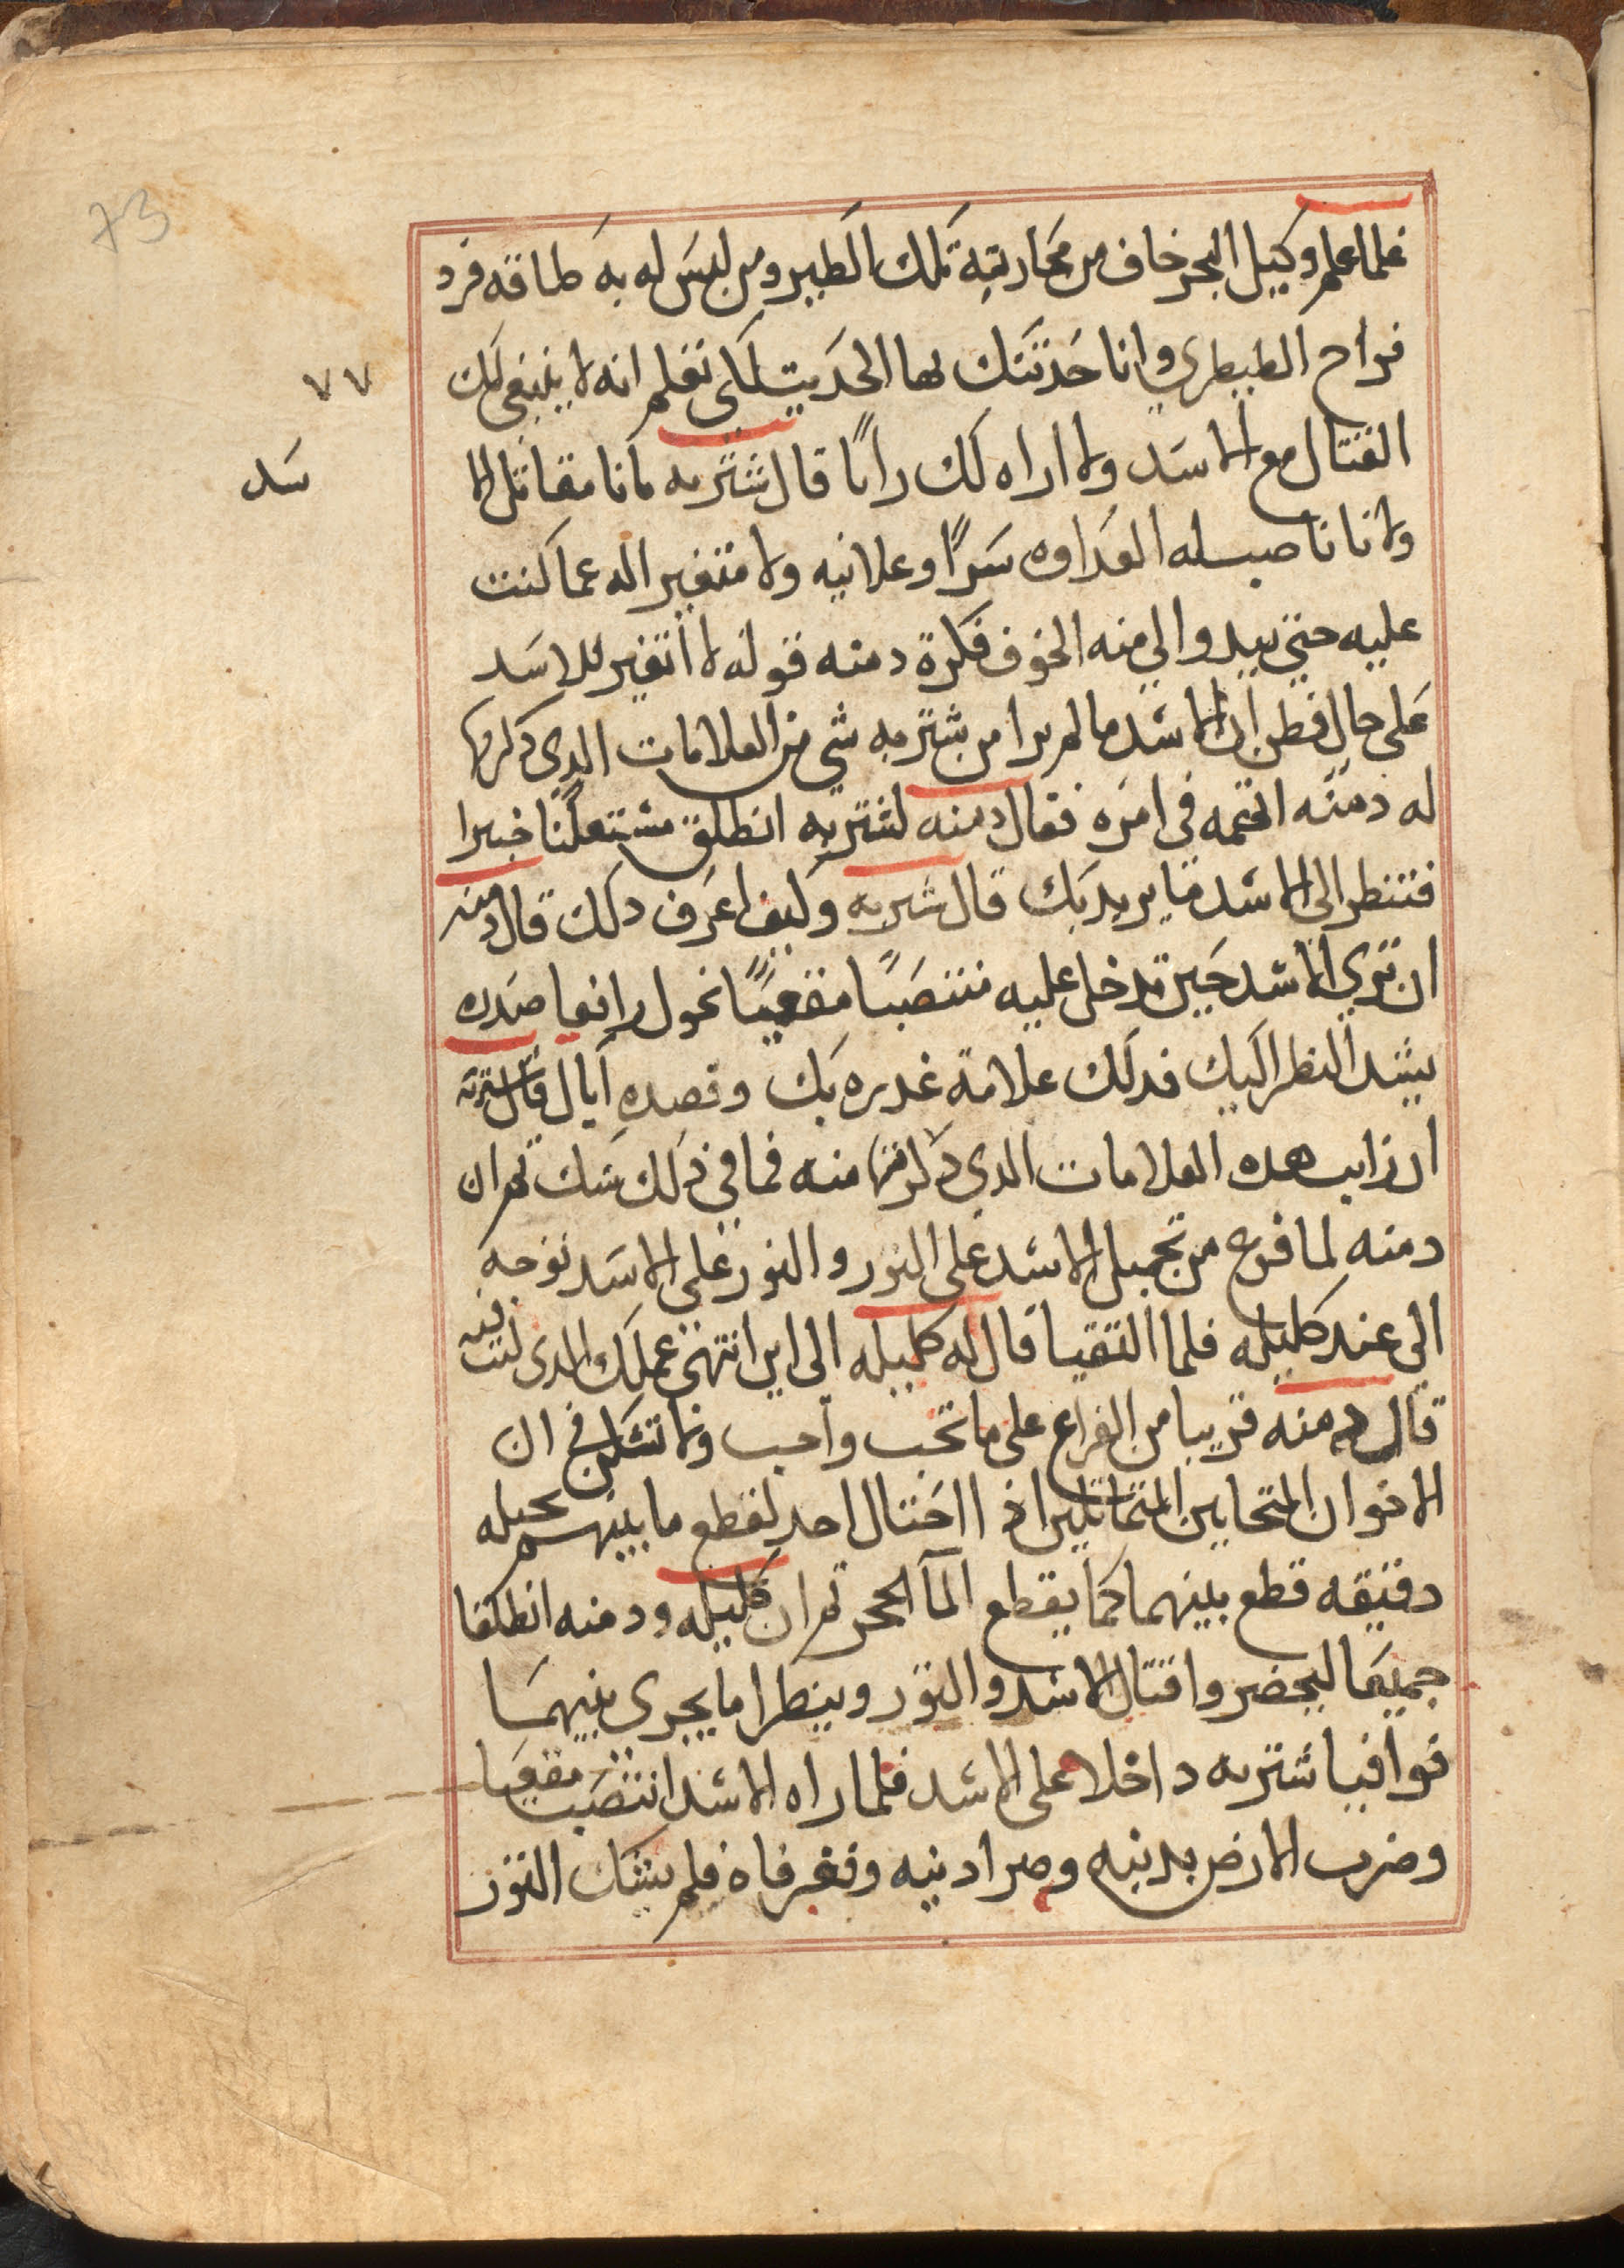 73
٧٧
فلما علم وكيل البحر خاف من محاربة تلك الطير ومن ليس له به طاقه فرد
فراح الطيطري وانا حدثتك بهذا الحديث لكي تعلم انه لا ينبغي لك
القتال مع الاسد ولا اراه لك رايًا قال شتربه ما انا مقاتل الا
سد
ولا انا ناصب له العداوه سرًا وعلانيه ولا متغير اله عما كنت
عليه حتي يبدوا لي منه الخوف فكرة دمنه قوله لا اتغير للاسد
على حال فظن ان الاسد ما لم يرا من شتربه شي من العلامات الدي ذكرها
له دمنه اتهمه في امره فقال دمنه لشتربه انطلق خبيرا
فتنظر الى الاسد ما يريد بك قال شتربه وكيف اعرف دلك قال دمنه
ان تري الاسد حين تدخل عليه منتصبًا مقعيًا نحوك رافعا صدره
يشد النظر اليك فدلك علامة غدره بك وقصده قال شتربه
ان رايت هده العلامات الدي ذكرتها منه فما في ذلك شك ثم ان
دمنه لما فرغ من تحميل الاسد على الثور والثور على الاسد توجه
الي عند كليله فلما التقيا قال له كليله الى اين انتهى عملك الدي كنت فيه
قال دمنه قريبا من الفراغ على ما تحب واحب ولا تشكن في ان
الاخوان المتحابين اذا احتال احد لقطع ما بينهم بحيله
دقيقه قطع بينهما كما يقطع الما الحجر ثم ان كليله ودمنه انطلقا
جميعا ليحضروا قتال الاسد والثور وينظرا ما يجري بينهما
فوافيا شتربه داخلا على الاسد فلما راه الاسد انتصب مقعيا
وضرب الارض بدنبه وصر ادنيه وفغر فاه فلم يشك الثور